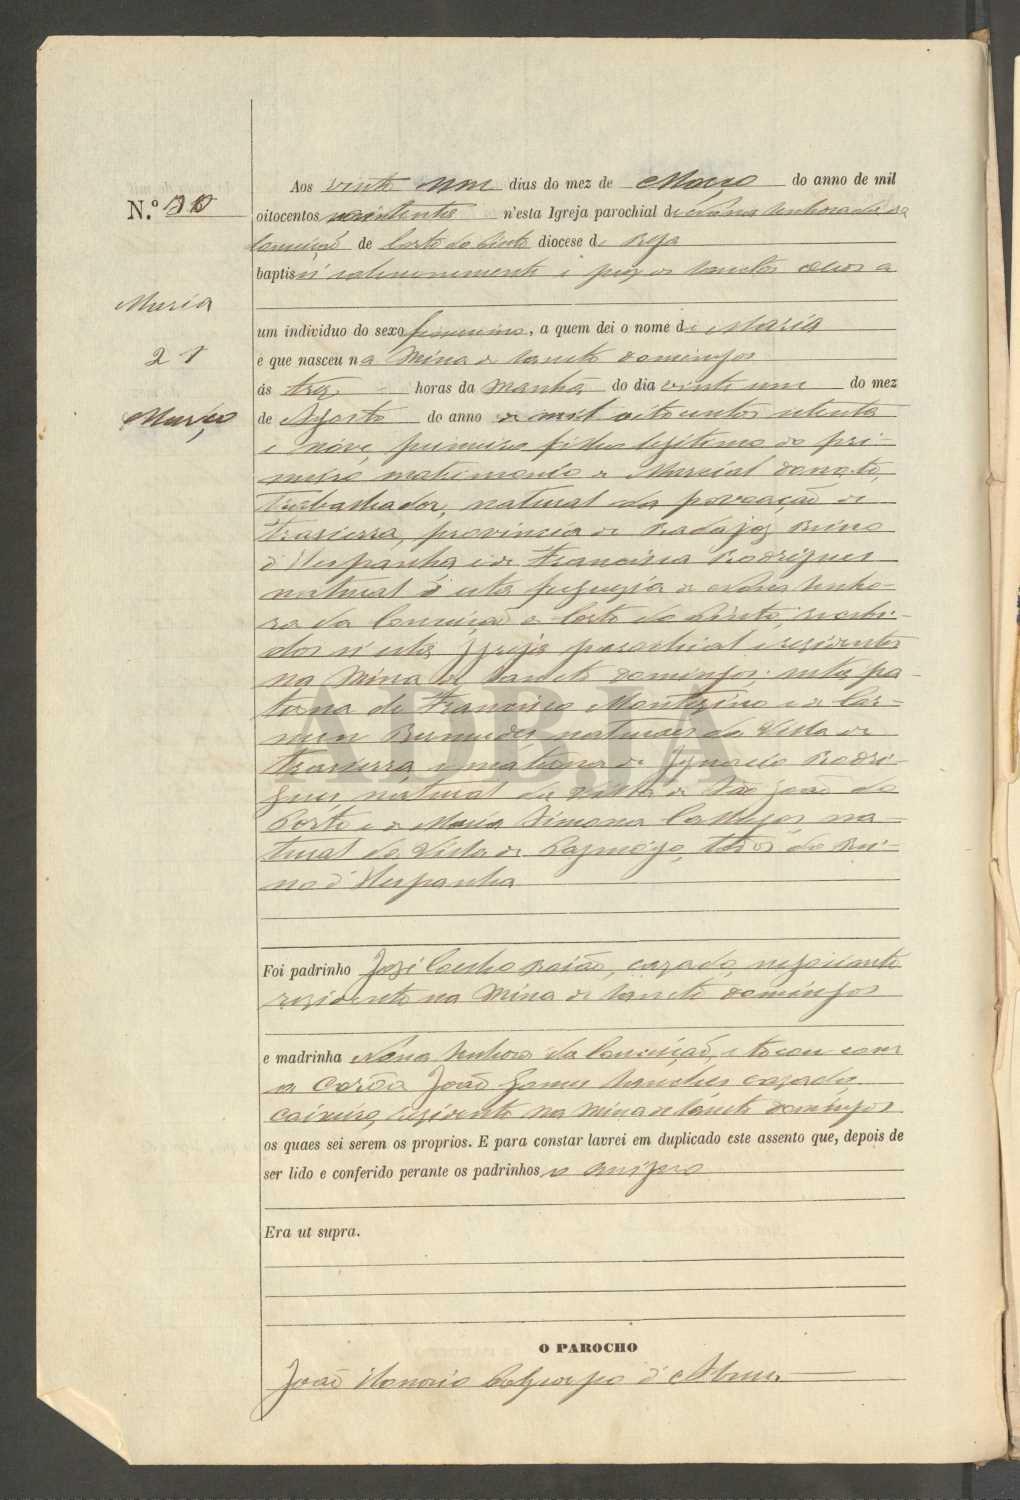 Aos vinte um dias do mez de Março do anno de mil
N.º 30
oitocentos oitenta n'esta Igreja parochial de Nossa Senhora da
Conceição de Corte do Pinto diocese de Beja
baptisei solemnemente e puz os Sanctos Oleos a
Maria
um individuo do sexo femenino, a quem dei o nome de Maria
21
e que nasceu na Mina de Sancto Domingos
ás trez horas da manhã, do dia vinte um do mez
Março
de Agosto do anno de mil oitocentos setenta
e nove, primeiro filho legitimo do pri-
meiro matrimonio de Marcial Donato,
Trabalhador, natural da povoação de
Trasierra, provincia de Badajoz Reino
d'Hespanha e de Francisca Rodrigues
natural d'esta freguezia de Nossa Senho-
ra da Conceição de Corte do Pinto, recebi-
dos n'esta Igreja parochial e rezidentes
na Mina de Sancto Domingos: neta pa-
terna de Francisco Montezino e de Car-
men Bermudes naturaes da Villa de
Trasierra e materna de Ignacio Rodri-
gues natural da Villa de São João do
Porto e de Maria Simona Calhejas na-
tural da Villa de Paymogo, todos do Rei-
no d'Hespanha
Foi padrinho José Coelho Raião, cazado, negociante
rezidente na Mina de Sancto Domingos
e madrinha Nossa Senhora da Conceição, e tocou com
a Corôa João Gomes Sanches cazado,
caixeiro, rezidente na Mina de Sancto Domingos
os quaes sei serem os proprios. E para constar lavrei em duplicado este assento que, depois de
ser lido e conferido perante os padrinhos o assigno
Era ut supra.
O PAROCHO
João Honorio d'Abreu
ADBJA